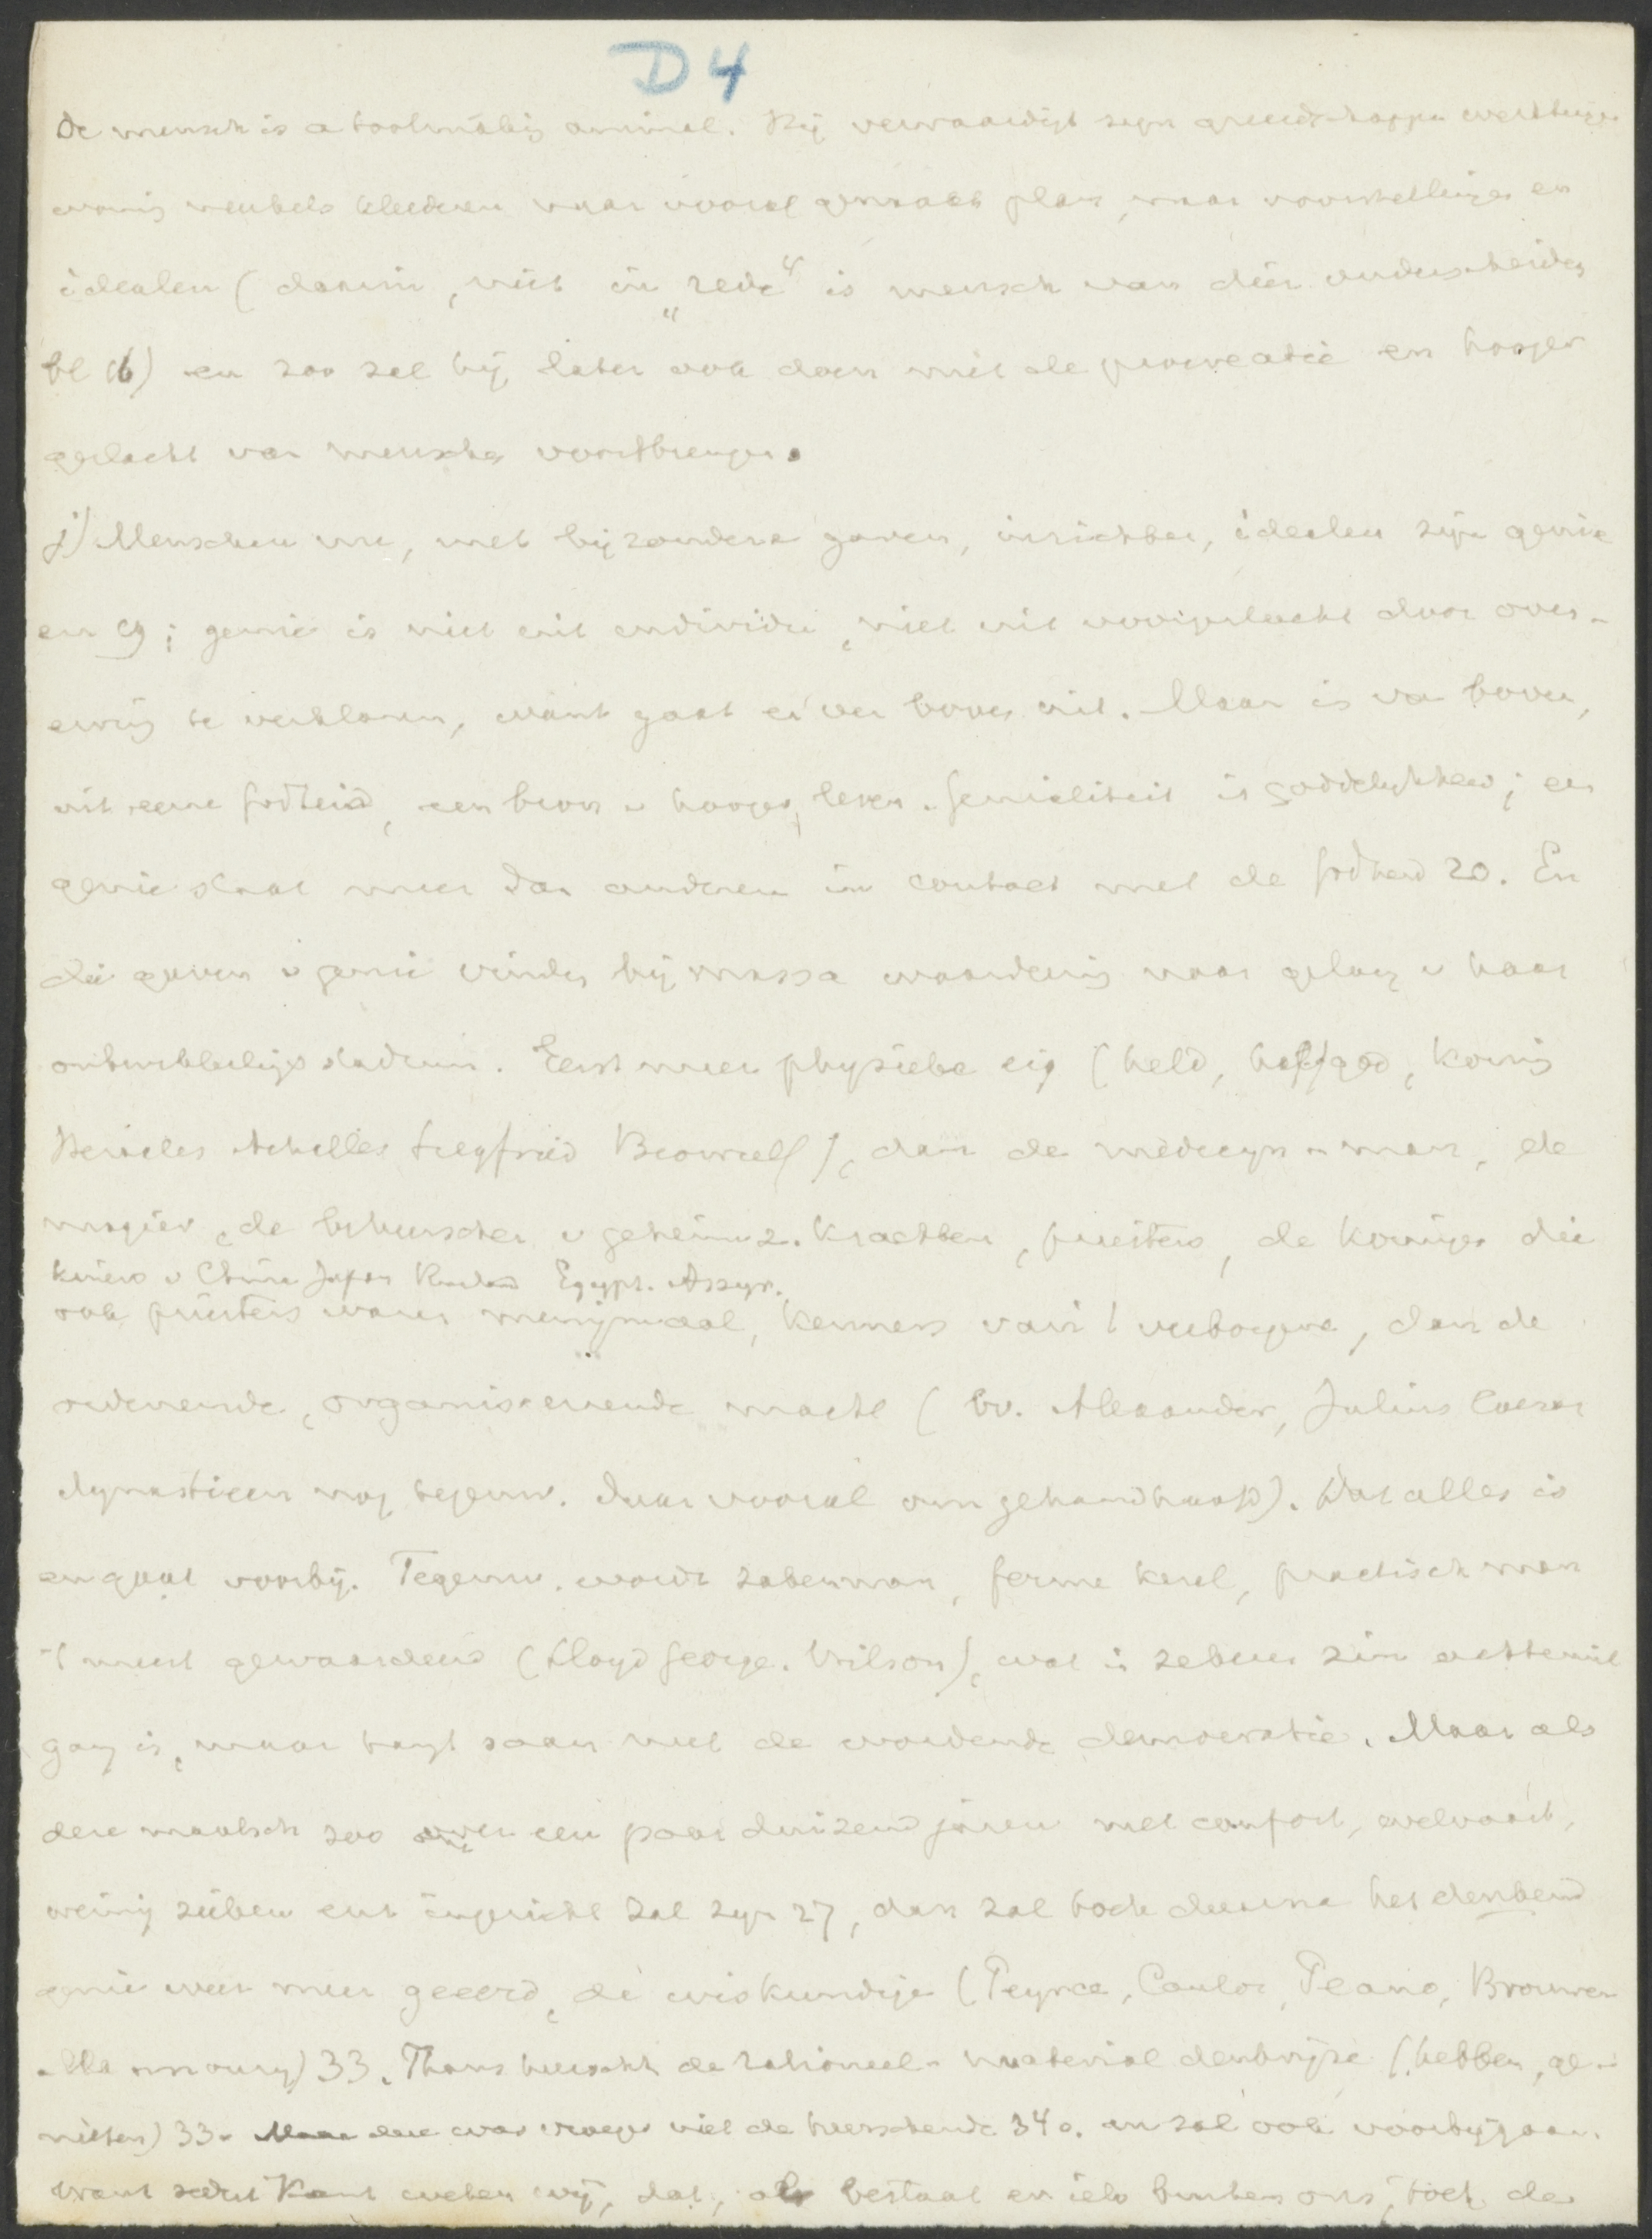 D4
De mensch is a toolmaking animal. Hij vervaardigt zijn gereedschappen werktuigen
woning meubels kleederen naar vooraf gemaakt plan, naar voorstellingen en
idealen (daarin, niet in „rede" is mensch van dier onderscheiden
bl 16) en zoo zal hij later ook doen met de procreatie en hooger
geslacht van menschen voortbrengen.
j) Menschen nu, met bijzondere gaven, inzichten, idealen zijn genie
en 19; genie is niet uit individu, niet uit voorgeslacht door over-
erving te verklaren, want gaat er ver boven uit. Maar is van boven,
uit eene godheid, een bron v hooger leven. Genialiteit is goddelijkheid; een
genie staat meer dan anderen in contact met de godheid 20. En
die gaven v genie vinden bij massa waardering naar gelang v haar
ontwikkelings stadium. Eerst meer physieke eig (held, halfgod, koning
Heracles Achilles Siegfried Beowulf), dan de medicijn-man, de
magier, de beheerscher v geheimz. krachten, priesters, de koningen die
keizers v China Japan Rusland Egypt. Assyr.
ook priesters waren menigmaal, kenners van 't verborgene, dan de
ordenende, organiseerende macht (bv. Alexander, Julius Caesar
dynastieen nog tegenw. daar vooral om gehandhaafd). Dat alles is
en gaat voorbij. Tegenw. wordt zakenman, ferme kerel, practisch man
't meest gewaardeerd (Lloyd George. Wilson), wat in zekeren zin achteruit
gang is, maar hangt saam met de wordende democratie. Maar als
deze maatsch zoo over een paar duizend jaren met comfort, welvaart,
weinig zieken enz ingericht zal zijn 27, dan zal toch daarna het denkend
genie weer meer geeerd, de wiskundige (Peyrce, Cantor, Peano, Brouwer
Mannoury) 33. Thans heerscht de rationeel-material denkwijze (hebben, ge-
nieten) 33. Maar deze was vroeger niet de heerschende 34 a. en zal ook voorbijgaan.
Want sedert Kant weten wij, dat, als bestaat er iets buiten ons, toch de